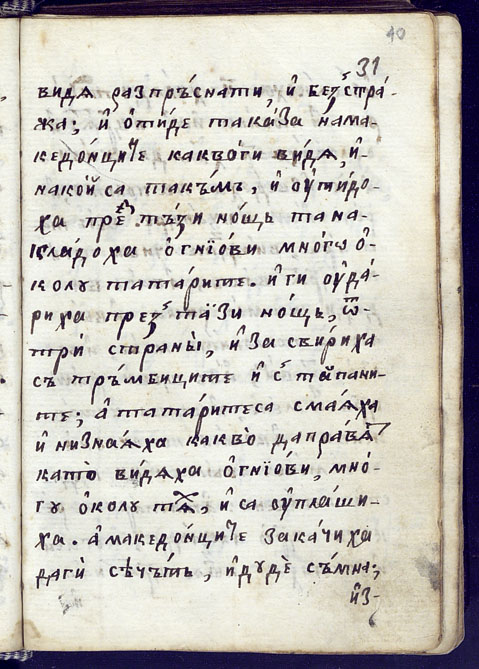 40
31
видѧ разпръснати, и безстра-
жа; и отиде такаѝзи нама-
кедонците каквоги видѧ, и-
накой са такъмъ, и оутидо-
ха през тъзи нощь та на-
кладоха огнїови многѡ о-
колу татарите. и ги оуда-
риха през таизи нощь, ѿ-
три страны, и за свириха
съ тръмбиците и с тѫпани-
те; а татаритеса смаѧха
и низнаѧха какво даправѧт
като видѧха огнїови, мно-
гу околу тѧх, и са оуплаши-
ха. а македонците закачиха
даги сѣчѫтъ, и дуде съмна;
из-